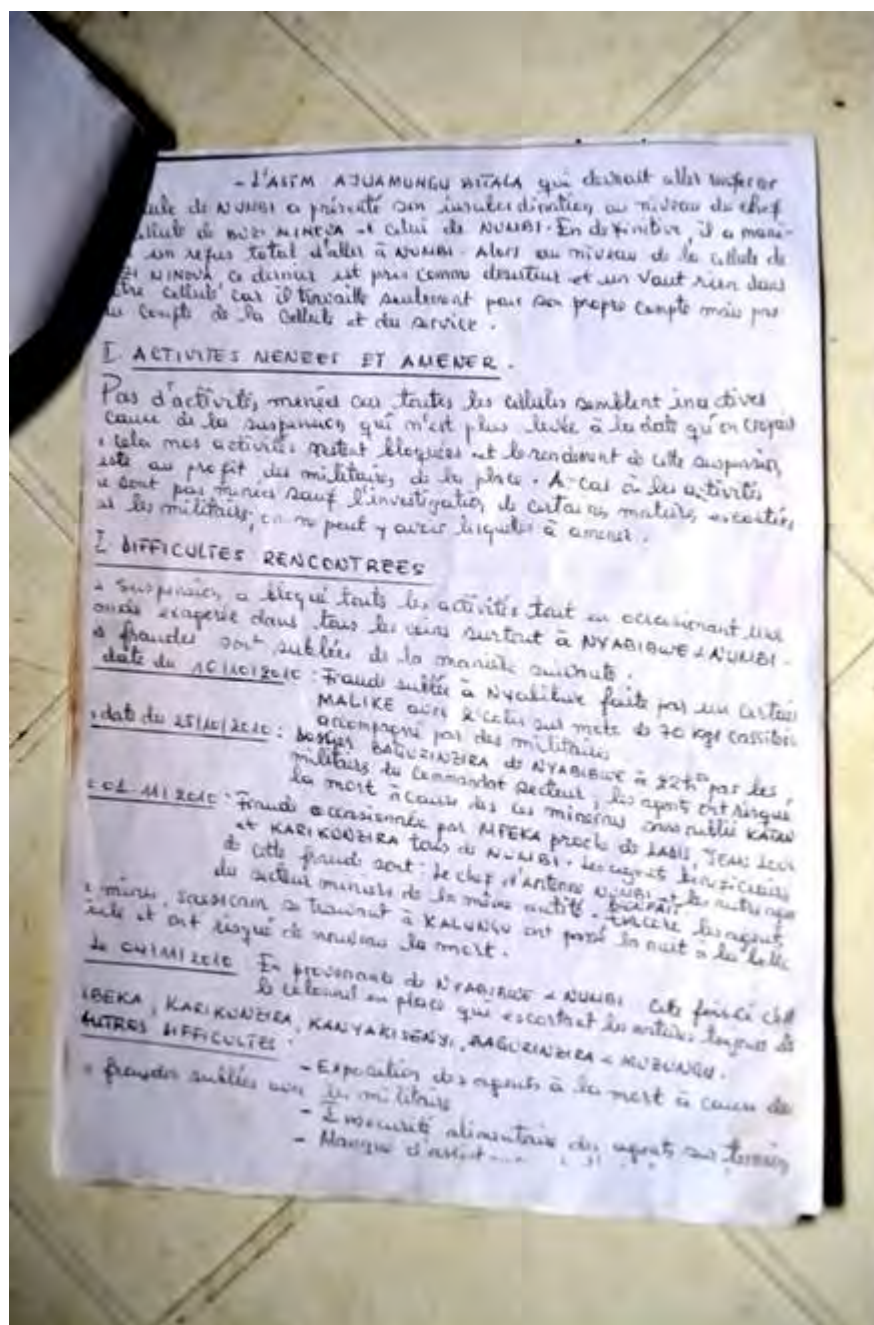 - L'ASTM AJUAMUNGU BITALA qui devrait aller renforcer
de NUMBI a présenté son insubordination au niveau du chef
de BUZI MINOVA et celui de NUMBI. En definitive, il a mani-
un refus total d'aller à NUMBI. Alors au niveau de la cellule de
MINOVA ce dernier est pris comme deserteur et un Vaut rien dans
cellule car il travaille seulement pour son propre compte mais pas
compte de la Cellule et du service.
I. ACTIVITES MENEES ET AMENER.
Pas d'activités menées car toutes les cellules semblent inactives
cause de la suspension qui n'est plus levée à la date qu'on croyait
cela nos activités restent bloquées et le rendement de cette suspension
au profit des militaires de la place. A-cas où les activités
sont pas menées sauf l'investigation de certaines matières escortées
les militaires, on ne peut y avoir lesquelles à amener.
I. DIFFICULTES RENCONTREES
suspension a bloqué toutes les activités tout en occasionant une
exagerée dans tous les coins surtout à NYABIBWE & NUMBI.
fraudes sont sublées de la manière suivante.
date du 10/10/2010 : Fraude sublée à Nyabibwe faite par un certain
MALIKE avec 2 colis sur moto de 70 kgs
accompagné par des militaires
date du 25/10/2010 : BAGURINZIRA de NYABIBWE à 22h par les
militaires du Commandat secteur, les agents ont risqué
la mort à cause des ces minerais
01.11/2010 : Fraude occasionnée par MPEKA proche de
et KARIKONZIRA tous de NUMBI. Les agents beneficiaires
de cette fraude sont : Le chef d'Antenne NUMBI et les autres
du secteur miniers de la même entité. ENCORE les agents
mines, saesscam se trouvant à KALUNGU ont passé la nuit à la belle
et ont risqué de nouveau la mort.
Le 04/11/2010 En provenance de NYABIBWE & NUMBI cette fois-ci c'est
le colonel en place qui escortent les entités toujours de
KARIKONZIRA, KANYAKISENYI, BAGURINZIRA & MUZUNGU.
AUTRES DIFFICULTES :
- Exposition des agents à la mort à cause de
fraudes sublées avec les militaires
- Insecurité alimentaire des agents sur terrain
- Manque